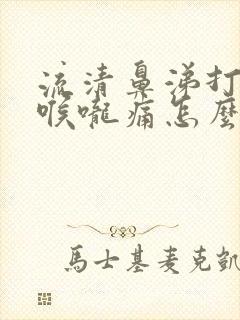 流清鼻涕打
喉嚨痛怎麼
馬士基麥克凱